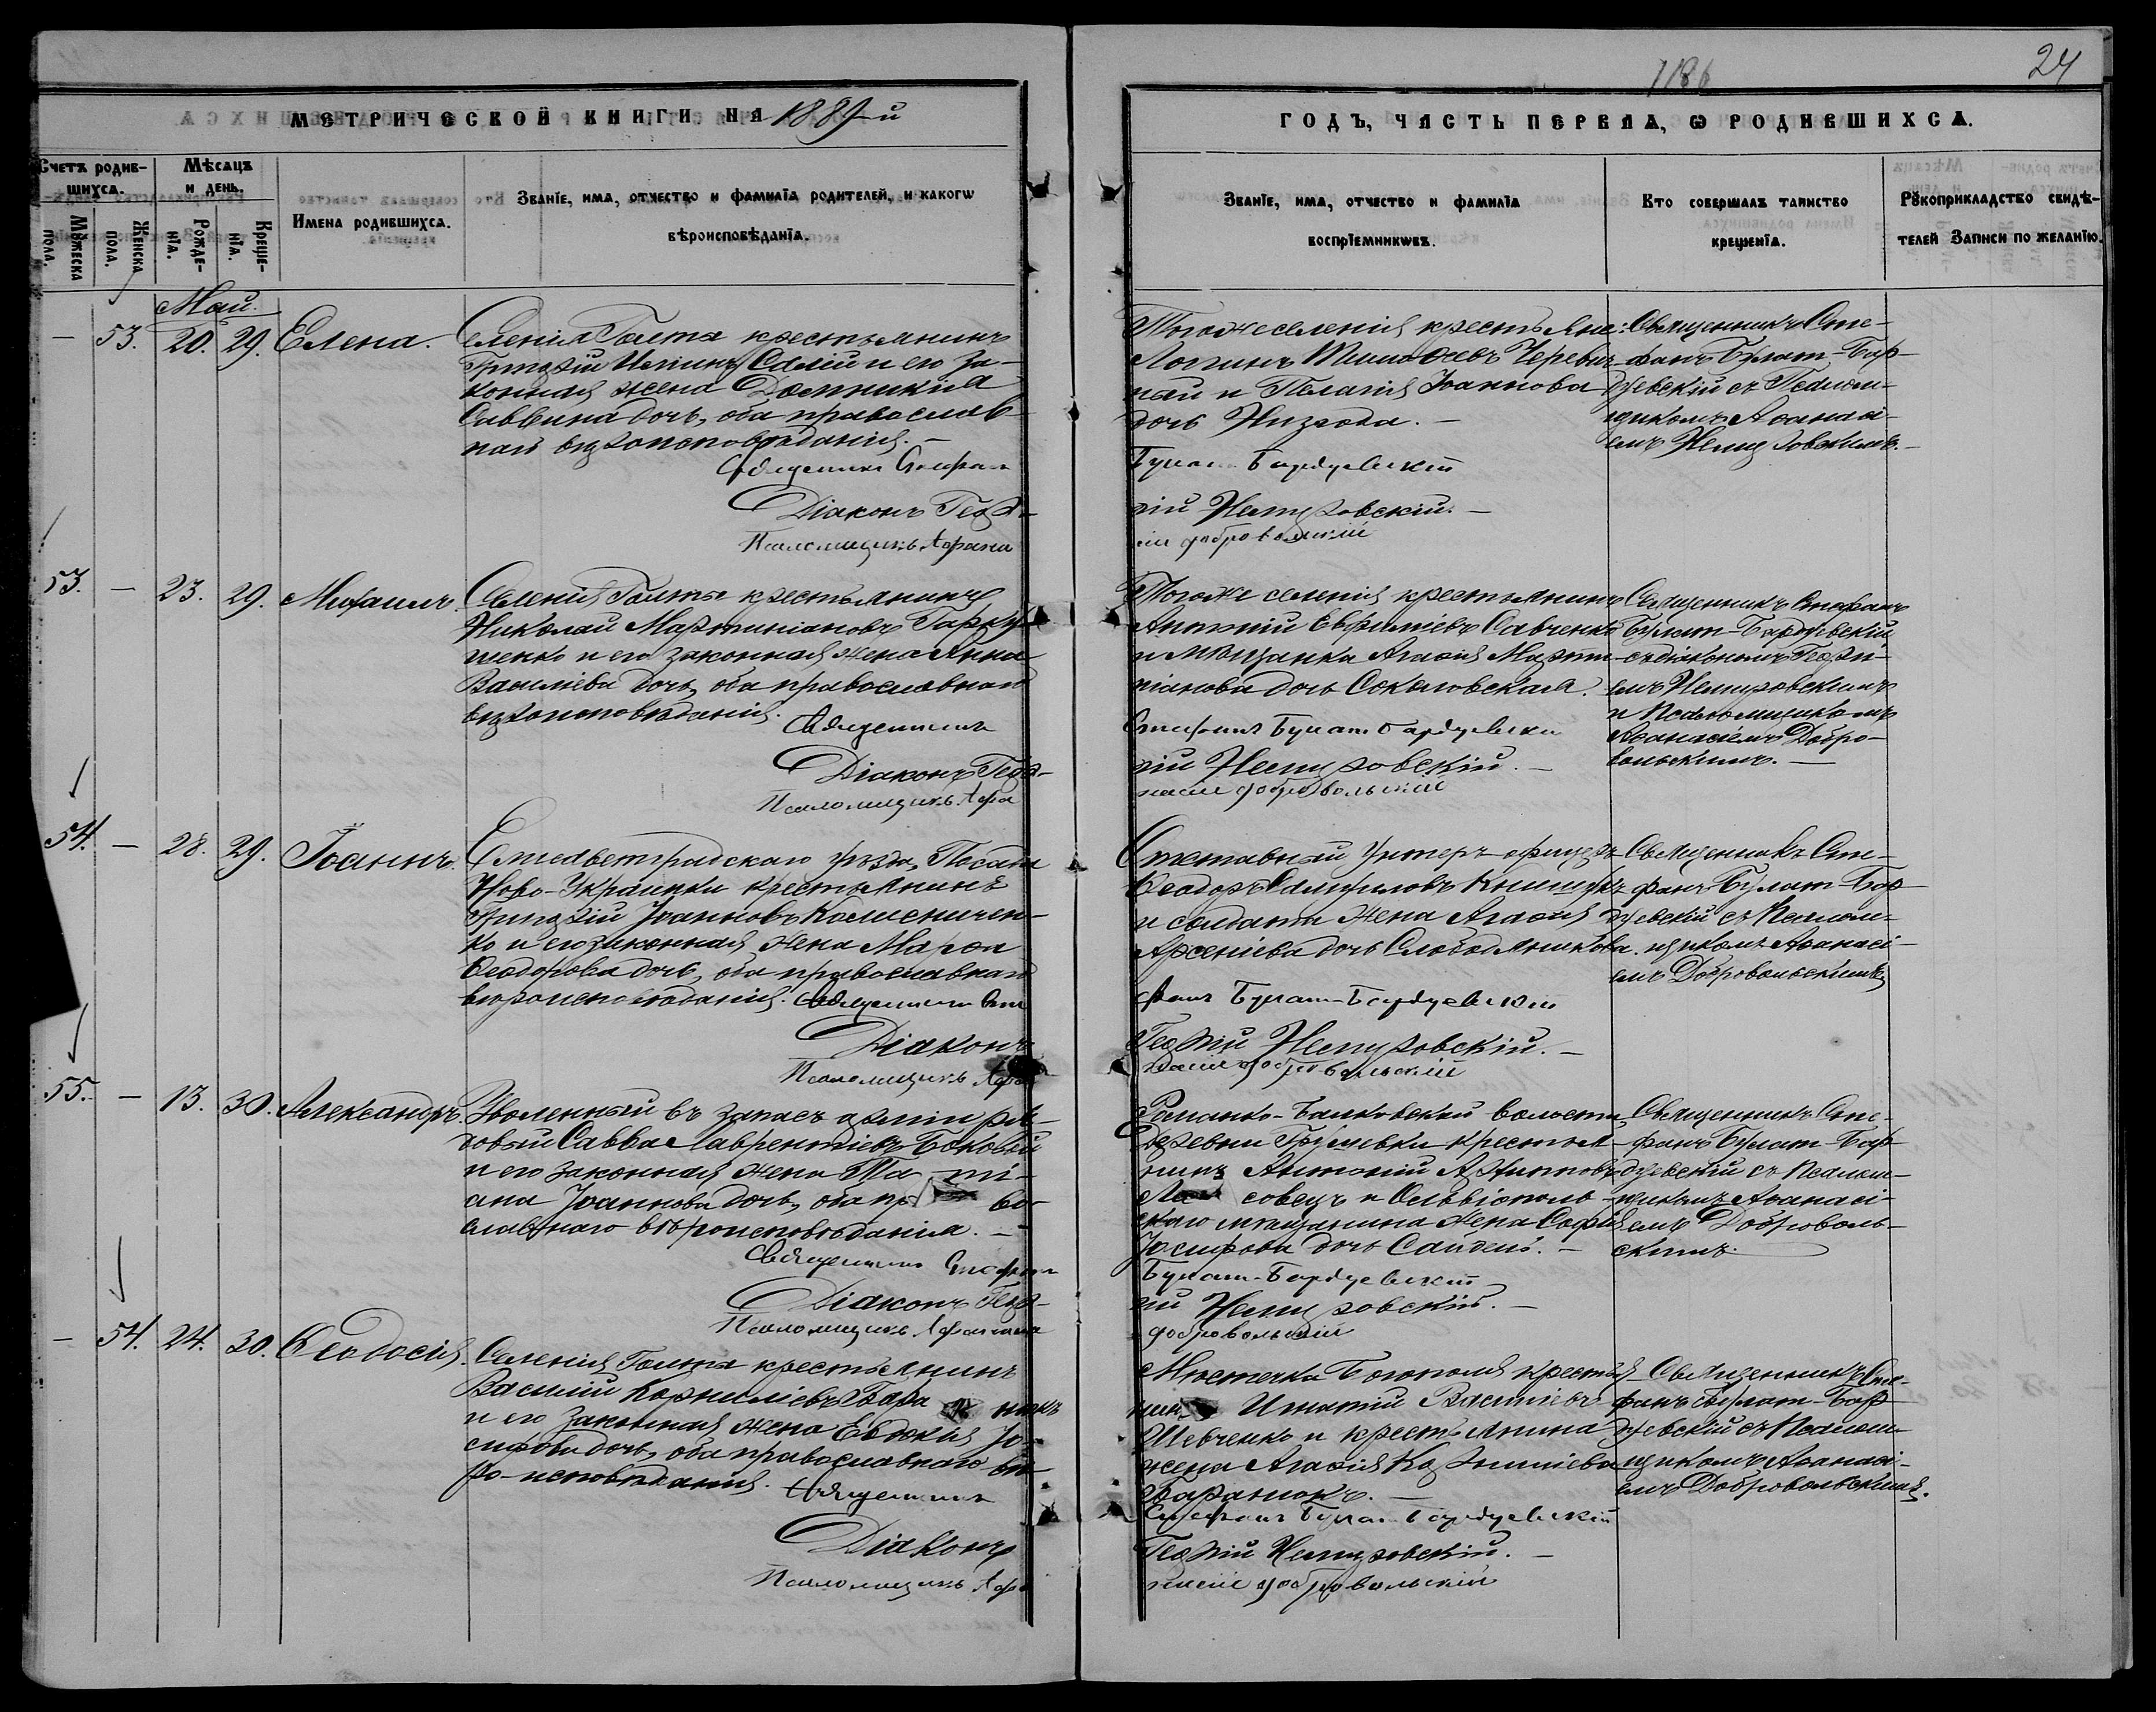 1186
24
МЕТРИЧЕСКОЙ КНИГИ НА 1889-й
ГОДЪ, ЧАСТЬ ПЕРВАѦ, Ѡ РОДИВШИХСѦ.
Счетъ родив-
шихсѧ.
Мꙋжеска
пола.
Женска
пола.
Мѣсѧцъ
и день.
Рожде-
нїѧ.
Креще-
нїѧ.
Имена родившихсѧ.
Званїе, имѧ, отчество и фамилїѧ родителей, и какогѡ
вѣроисповѣданїѧ.
Званїе, имѧ, отчество и фамилїѧ
воспрїемникѡвъ.
Кто совершалъ таинство
крещенїѧ.
Рꙋкоприкладство свидѣ-
телей записи по желанїю.
Май.
— 53. 20. 29. Елена.
Селенія Голты крестьянинъ
Григорій Салій и его за-
конная жена Домникія
Саввина дочь, оба православ-
наго вѣроисповѣданія. —
Священникъ Стефанъ
Діаконъ Геор-
Псаломщикъ Афана
Тогоже селенія крестьяне:
Логгинъ Черевич-
ный и Пелагія Іоаннова
дочь —
Булат-Бардзевскій
гій Немировскій. —
сій Добровольскій
Священникъ Сте-
фанъ Булат-Бар-
дзевскій съ Псалом-
щикомъ Аѳанасі-
емъ
53. — 23. 29. Михаилъ.
Селенія Голты крестьянинъ
Николай Мартиніановъ Гарку-
шенко и его законная жена Анна
Васильева дочь, оба православнаго
вѣроисповѣданія.
Священникъ
Діаконъ Геор-
Псаломщикъ Афа
Тогоже селенія крестьянинъ
Евфиміевъ Савченко
и мѣщанка Агафія Марти-
ніанова дочь Соколовская.
Стефанъ Булат-Бардзевскій
гій Немировскій. —
насій Добровольскій
Священникъ Стефанъ
Булат-Бардзевскій
съ діакономъ Георгі-
емъ Немировскимъ
и Псаломщикомъ
Аѳанасіемъ Добро-
вольскимъ. —
54. — 28. 29. Іоаннъ.
Елисаветградскаго уѣзда, Посада
Ново-Украинки крестьянинъ
Григорій Іоанновъ Колисничен-
ко и его законная жена Марѳа
Ѳеодорова дочь, оба православнаго
вѣроисповѣданія. Священникъ Сте
Діаконъ
Псаломщикъ Афа
Отставный унтеръ-офицеръ
Ѳеодоръ
и солдата жена Агафія
Арсеніева дочь Слободяникова.
фанъ Булат-Бардзевскій
Георгій Немировскій. —
насій Добровольскій
Священникъ Сте-
фанъ Булат-Бар-
дзевскій съ Псалом-
щикомъ Аѳанасі-
емъ Добровольскимъ
55. — 13. 30. Александръ.
Уволенный въ запасъ арміи ря-
довой Савва Лаврентіевъ Боковый
и его законная жена Та ті-
ана Іоаннова дочь, оба пра во-
славнаго вѣроисповѣданія. —
Священникъ Стефанъ
Діаконъ Геор-
Псаломщикъ Афанасій
Романко-Балковской волости
деревни Грушевки крестья-
нинъ Антоній
и Ольвіополь-
скаго мѣщанина жена Софія
Іосифова дочь —
Булат-Бардзевскій
гій Немировскій. —
Добровольскій
Священникъ Сте-
фанъ Булат-Бар-
дзевскій съ Псалом-
щикомъ Аѳанасі-
емъ Доброволь-
скимъ.
— 54. 24. 30. Ѳеодосія.
Селенія Голты крестьянинъ
Василій Корниліевъ Бара нюкъ
и его законная жена Евдокія Іо-
сифова дочь, оба православнаго вѣ-
ро-исповѣданія. Священникъ
Діаконъ
Псаломщикъ Афа
Мѣстечка Богополя крестья-
нинъ Игнатій Васильевъ
Шевченко и крестьянина
жена Агафія Корниліева
Баранюкъ. —
Стефанъ Булат-Бардзевскій
Георгій Немировскій. —
насій Добровольскій
Священникъ Сте-
фанъ Булат-Бар-
дзевскій съ Псалом-
щикомъ Аѳанасі-
емъ Добровольскимъ.